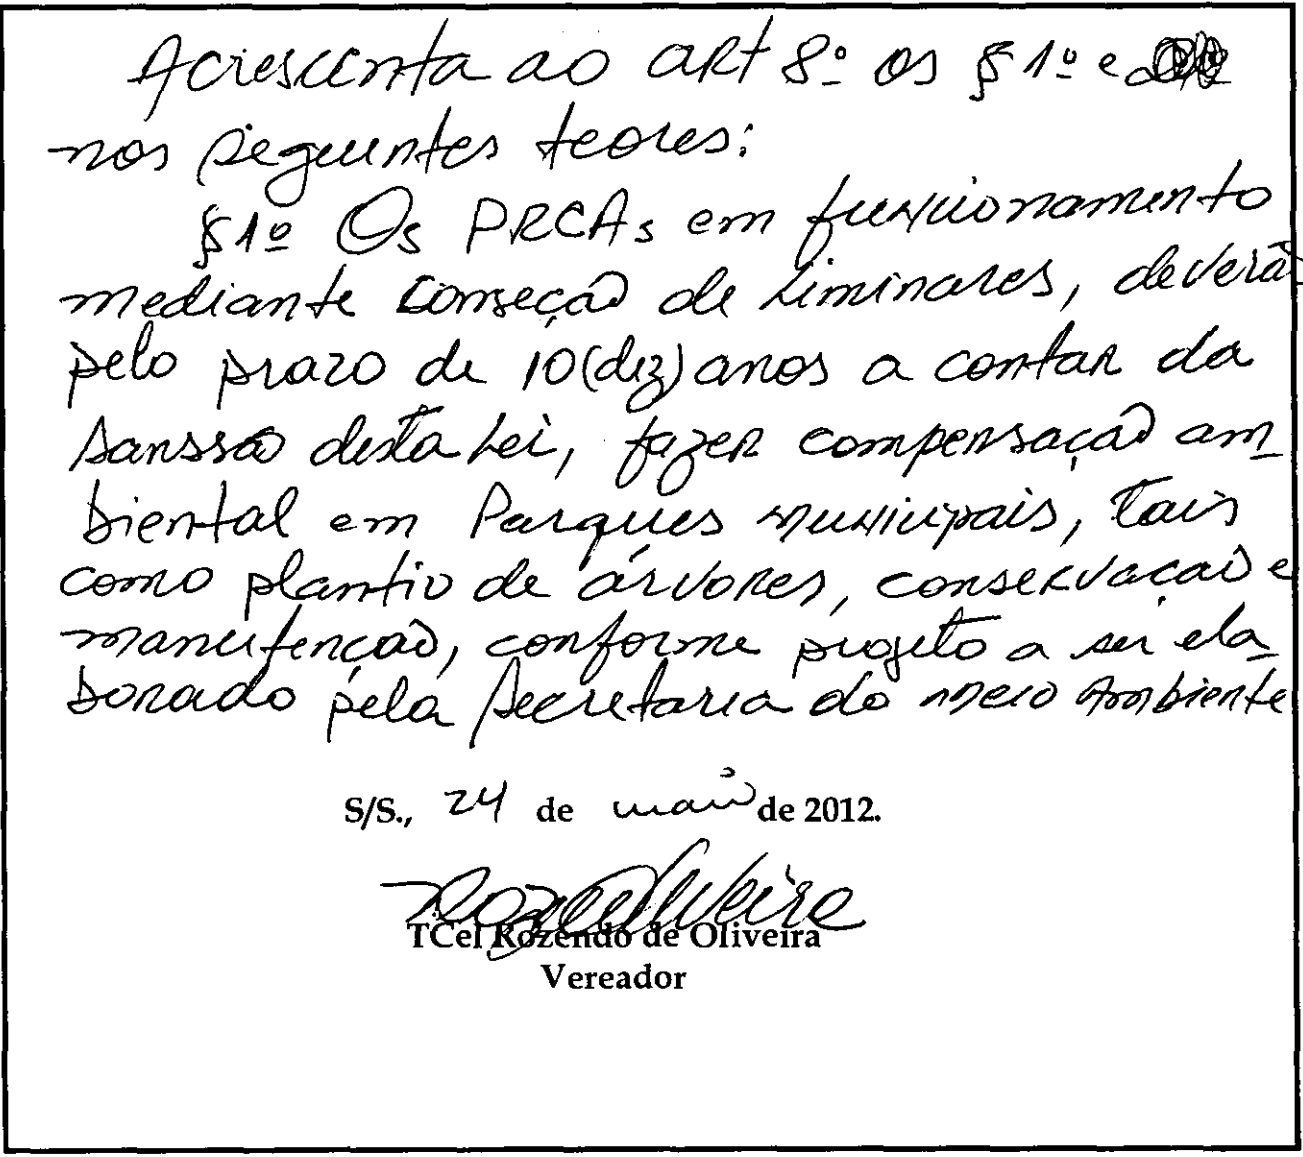 Acrescenta ao art 8º os § 1º e
nos seguintes teores:
§1º Os PRCAs em funcionamento
mediante conseção de Liminares, deverão
pelo prazo de 10(dez) anos a contar da
Sanssão desta Lei, fazer compensação am
biental em Parques municipais, tais
como plantio de árvores, conservação e
manutenção, conforme projeto a ser ela
borado pela Secretaria do Meio Ambiente
S/S., 24 de maio de 2012.
TCel Rozendo de Oliveira
Vereador